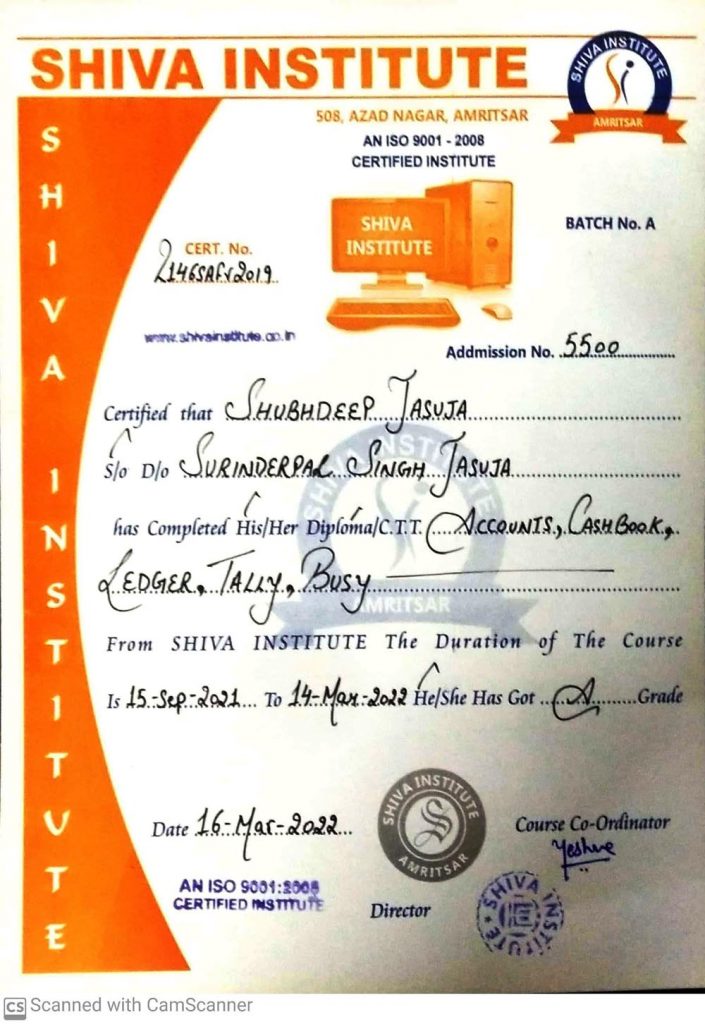 SHIVA INSTITUTE
SHIVA INSTITUTE
AMRITSAR
508, AZAD NAGAR, AMRITSAR
AN ISO 9001 - 2008
CERTIFIED INSTITUTE
SHIVA INSTITUTE
SHIVA
INSTITUTE
BATCH No. A
CERT. No.
www.shivainstitute.co.in
Addmission No. 5500
Certified that SHUBHDEEP JASUJA
S/o D/o SURINDERPAL SINGH JASUJA
SHIVA INSTITUTE
AMRITSAR
has Completed His/Her Diploma/C.T.T. ACCOUNTS, CASHBOOK,
LEDGER, TALLY, BUSY
From SHIVA INSTITUTE The Duration of The Course
Is 15-Sep-2021 To 14-Mar-2022 He/She Has Got A Grade
SHIVA INSTITUTE
AMRITSAR
Date 16-Mar-2022
Course Co-Ordinator
AN ISO 9001:2008
CERTIFIED INSTITUTE
Director
SHIVA INSTITUTE
CS Scanned with CamScanner